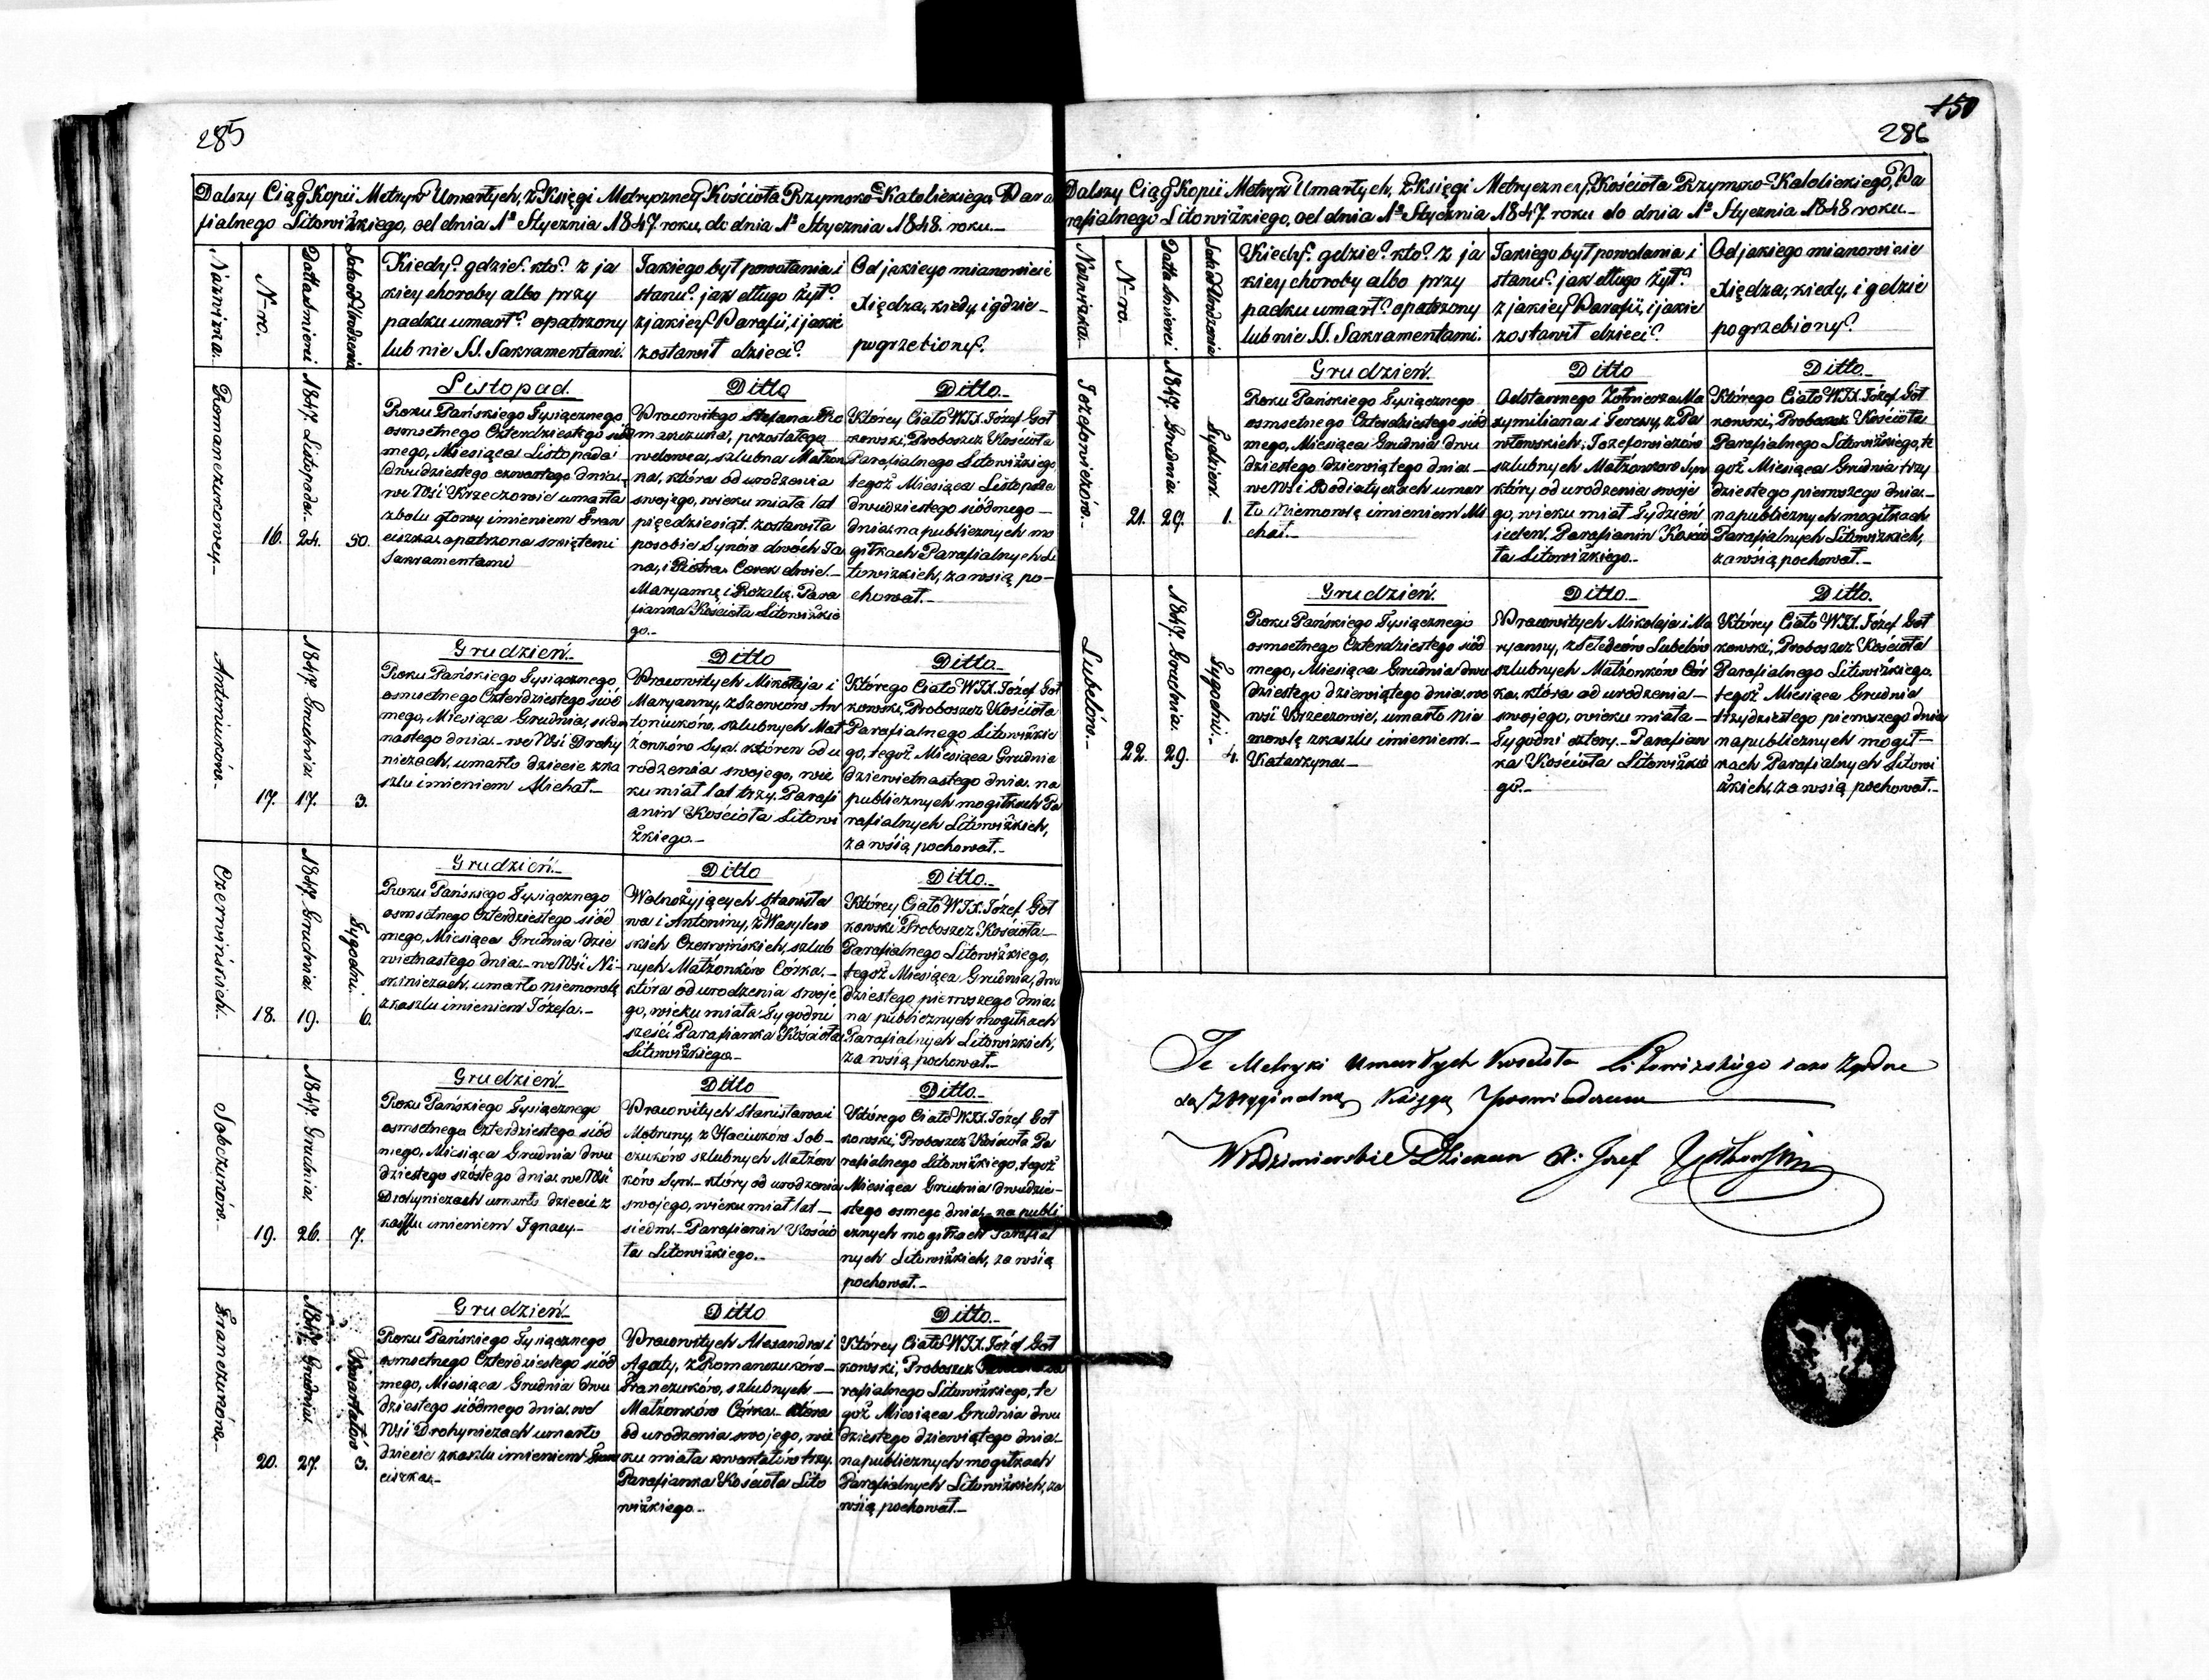 285
Dalszy Ciąg Kopii Metryk Umarłych, z Księgi Metryczney Kościoła Rzymsko-Katolickiego Para
fialnego Litowizkiego, od dnia 1º Stycznia 1847. roku, do dnia 1º Stycznia 1848. roku.
Nazwizka.
N-ro.
Datta smierci
Kiedy? gdzie? kto? z ja
kiey choroby albo przy
padku umarł? opatrzony
lub nie SS. Sakramentami.
Jakiego był powołania i
stanu? jak długo żył?
z jakiey Parafii, i jakie
zostawił dzieci?
Od jakiego mianowicie
Xiędza, kiedy, i gdzie
pogrzebiony?
Romanczukowey.
16.
1847. Listopada.
24.
50.
Listopad.
Roku Pańskiego Tysiącznego
osmsetnego Czterdziestego siód
mego, Miesiąca Listopada
dwudziestego czwartego dnia
we Wsi Krzeczowie umarła
z bolu głowy imieniem Fran
ciszka opatrzona swiętemi
Sakramentami
Ditto
Pracowitego Stefana Ro
manczuka, pozostałego
wdowca, szlubna Małżon
ka, która od urodzenia
swojego, wieku miała lat
pięcdziesiąt. zostawiła
po sobie Synów dwóch Ja
na, i Piotra. Corek dwie
Maryannę i Rozalię. Para
fianka Kościoła Litowizkie
go.
Ditto.
Którey Ciało WJX. Józef Goł
kowski, Proboszcz Kościoła
Parafialnego Litowizkiego,
tegoż Miesiąca Listopada
dwudziestego siódmego
dnia na publicznych mo
giłkach Parafialnych Li
towizkich, za wsią po-
chował.
Antoniuków.
17.
1847. Grudnia.
17.
3.
Grudzień.
Roku Pańskiego Tysiącznego
osmsetnego Czterdziestego siód
mego, Miesiąca Grudnia, siedm
nastego dnia we Wsi Drohy
niczach, umarło dziecie z ka
szlu imieniem Michał.
Ditto
Pracowitych Mikołaja i
Maryanny, z Szewców An
toniuków, szlubnych Mał
żonków Syn. któren od u
rodzenia swojego, wie
ku miał lat trzy. Parafi
anin Kościoła Litowi
zkiego.
Ditto.
Którego Ciało WJX. Józef Goł
kowski, Proboszcz Kościoła
Parafialnego Litowizkie
go, tegoż Miesiąca Grudnia
dziewietnastego dnia. na
publicznych mogiłkach Pa
rafialnych Litowizkich,
za wsią pochował.
Czerwińskich.
18.
1847. Grudnia.
19.
Tygodni.
6.
Grudzień.
Roku Pańskiego Tysiącznego
osmsetnego Czterdziestego siód
mego, Miesiąca Grudnia dzie
wietnastego dnia we Wsi Ni
skiniczach, umarło niemowlę
z kaszlu imieniem Józefa.
Ditto
Wolnożyjących Stanisła
wa i Antoniny, z Wasylew
skich Czerwińskich, szlub
nych Małżonków Córka.
która od urodzenia swoje
go, wieku miała Tygodni
sześć. Parafianka Kościoła
Litowizkiego.
Ditto.
Którey Ciało WJX. Józef Goł
kowski Proboszcz Kościoła
Parafialnego Litowizkiego,
tegoż Miesiąca Grudnia, dwu
dziestego pierwszego dnia.
na publicznych mogiłkach
Parafialnych Litowizkich,
za wsią pochował.
Sobczuków.
19.
1847. Grudnia.
26.
7.
Grudzień.
Roku Pańskiego Tysiącznego
osmsetnego Czterdziestego siód
mego, Miesiąca Grudnia dwu
dziestego szóstego dnia. we Wsi
Drohyniczach umarło dziecie z
kaszlu imieniem Ignacy.
Ditto
Pracowitych Stanisława i
Motruny, z Haciuków Sob-
czuków szlubnych Małżon
ków Syn. który od urodzenia
swojego, wieku miał lat
siedm. Parafianin Kościo
ła Litowizkiego.
Ditto.
Którego Ciało WJX. Józef Goł
kowski, Proboszcz Kościoła Pa
rafialnego Litowizkiego, tegoż
Miesiąca Grudnia dwudzie-
stego osmego dnia. na publi
cznych mogiłkach Parafial
nych Litowizkich, za wsią
pochował.
Franczuków.
20.
1847. Grudnia.
27.
Kwartałów
3.
Grudzień.
Roku Pańskiego Tysiącznego
osmsetnego Czterdziestego siód
mego, Miesiąca Grudnia dwu
dziestego siódmego dnia. we
Wsi Drohyniczach umarło
dziecie z kaszlu imieniem Fran
ciszka.
Ditto
Pracowitych Alexandra i
Agaty, z Romanczuków
Franczuków, szlubnych
Małżonków Córka. która
od urodzenia swojego, wie
ku miała kwartałów trzy.
Parafianka Kościoła Lito
wizkiego.
Ditto.
Którey Ciało WJX. Józef Goł
kowski, Proboszcz
rafialnego Litowizkiego, te
goż Miesiąca Grudnia dwu
dziestego dziewiątego dnia.
na publicznych mogiłkach
Parafialnych Litowizkich, za
wsią pochował.
150
286
Dalszy Ciąg Kopii Metryk Umarłych, z Księgi Metryczney Kościoła Rzymsko-Katolickiego, Pa
rafialnego Litowizkiego, od dnia 1º Stycznia 1847. roku do dnia 1º Stycznia 1848 roku.
Nazwizka.
N-ro.
Datta smierci
Kiedy? gdzie? kto? z ja
kiey choroby albo przy
padku umarł? opatrzony
lub nie SS. Sakramentami.
Jakiego był powołania i
stanu? jak długo żył?
z jakiey Parafii, i jakie
zostawił dzieci?
Od jakiego mianowicie
Xiędza, kiedy, i gdzie
pogrzebiony?
Jozefowiczów.
21.
1847. Grudnia.
29.
Tydzien.
1.
Grudzień.
Roku Pańskiego Tysiącznego
osmsetnego Czterdziestego siód
mego, Miesiąca Grudnia dwu
dziestego dziewiątego dnia
we Wsi Bodiatyczach umar
ło Niemowlę imieniem Mi
chał.
Ditto
Odstawnego Żołnierza Ma
xymiliana i Teressy, z Pa
włowskich, Jozefowiczów
szlubnych Małżonków Syn
który od urodzenia swoje
go, wieku miał Tydzień
ieden. Parafianin Kościo
ła Litowizkiego.
Ditto.
Którego Ciało WJX. Józef Goł
kowski, Proboszcz Kościoła
Parafialnego Litowizkiego, te
goż Miesiąca Grudnia trzy
dziestego pierwszego dnia.
na publicznych mogiłkach
Parafialnych Litowizkich,
za wsią pochował.
Lubelów.
22.
1847. Grudnia.
29.
Tygodni.
4.
Grudzień.
Roku Pańskiego Tysiącznego
osmsetnego Czterdziestego siód
mego, Miesiąca Grudnia dwu
dziestego dziewiątego dnia. we
wsi Krzeczowie, umarło nie
mowlę z kaszlu imieniem
Katarzyna.
Ditto.
Pracowitych Mikołaja i Ma
ryanny, Lubelów
szlubnych Małżonków Cór
ka. która od urodzenia
swojego, wieku miała
Tygodni cztery. Parafian
ka Kościoła Litowizkie
go.
Ditto.
Którey Ciało WJX. Józef Goł
kowski, Proboszcz Kościoła
Parafialnego Litowizkiego.
tegoż Miesiąca Grudnia
trzydziestego pierwszego dnia
na publicznych mogił-
kach Parafialnych Litowi
zkich, za wsią pochował.
Te Metryki Umarłych Kościoła Litowizkiego iako zgodne
są z oryginalną Księgą
Włodzimierski Dziekan X. Jozef Gołkowski